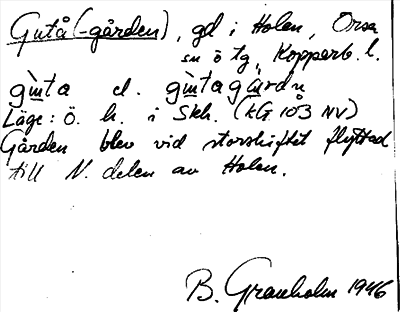 Gutå (-gården), gd i Holen, Orsa
sn ö tg, Kopparb. l.
gùta el. gùtagàrdn
Läge: Ö. h. i Skh. (kG 103 NV)
Gården blev vid storskiftet flyttad
till N. delen av Holen.
B. Granholm 1946